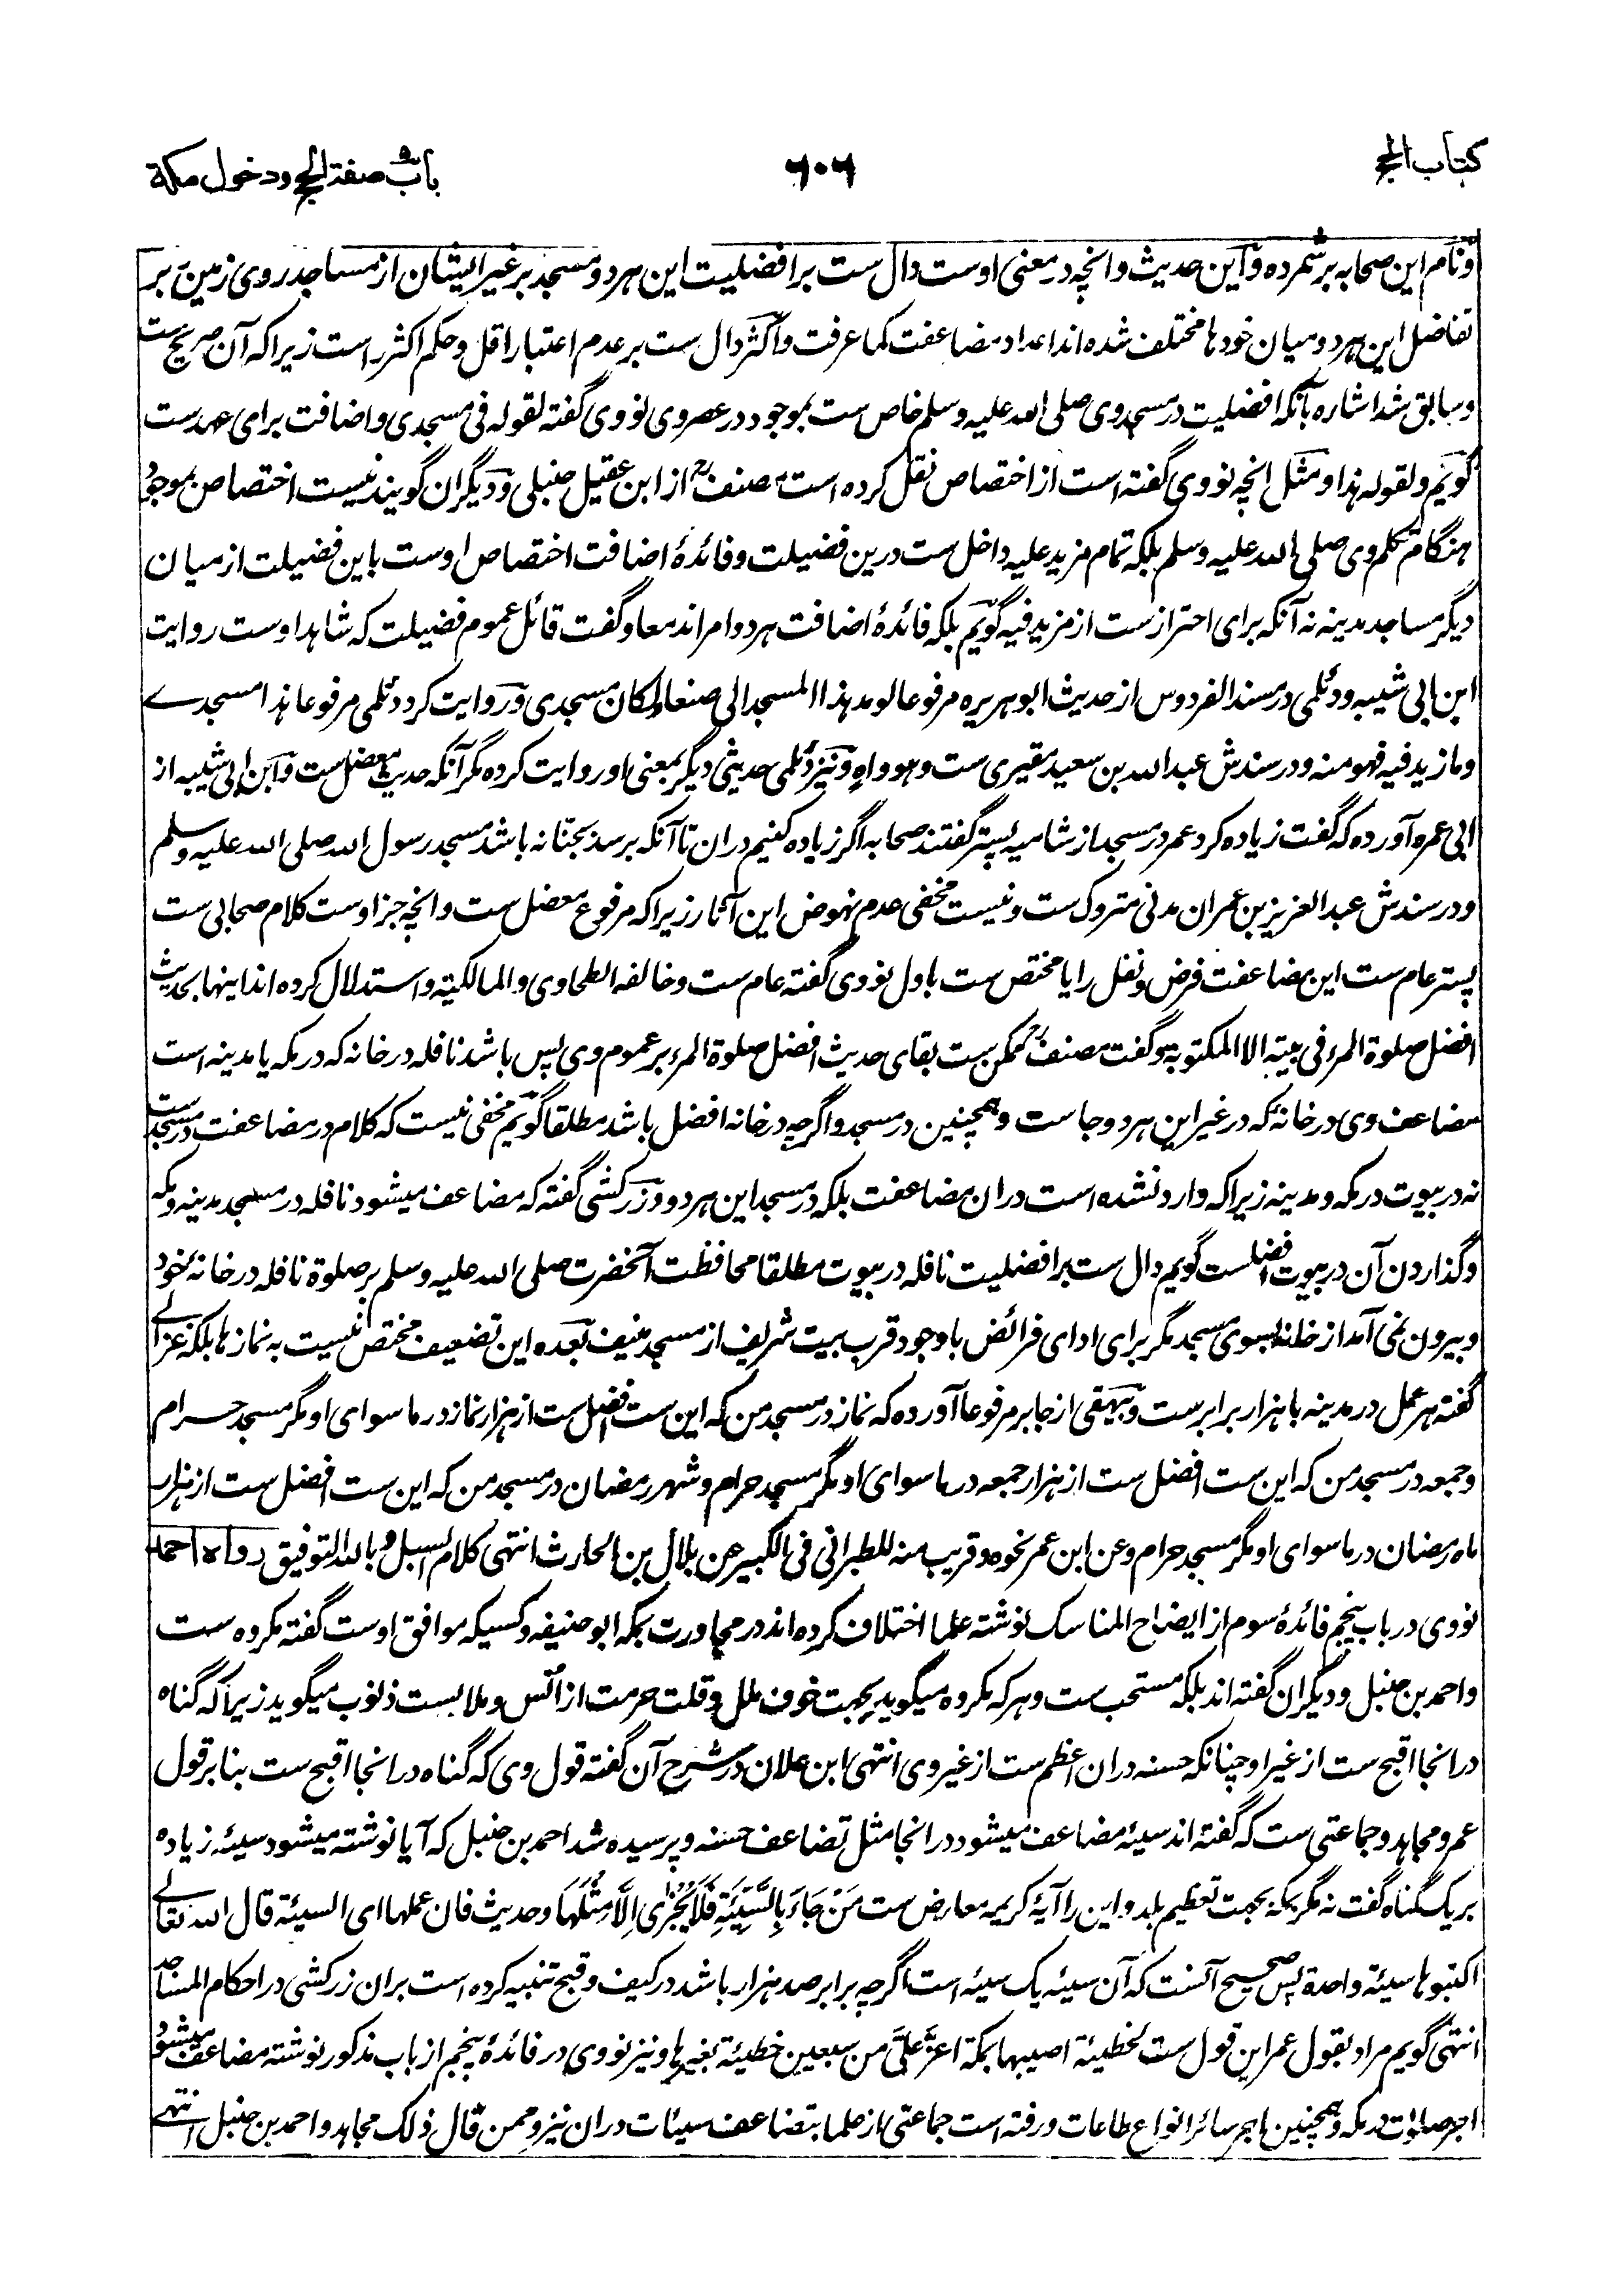 کتاب الحج
۶۰۶
باب صفة الحج ودخول مکة
ونام این صحابه برشمرده واین حدیث وانچه در معنی اوست دال ست بر افضلیت این هر دو مسجد بر غیر ایشان از مساجد روی زمین بر
تفاضل این هر دو میان خودها مختلف شده اند اعداد مضاعفت کما عرفت واکثر دال ست بر عدم اعتبار اقل وحکم اکثر راست زیرا که آن صریح ست
وسابق شد اشاره بآنکه افضلیت در مسجد وی صلی الله علیه وسلم خاص ست بموجود در عصر وی نووی گفته لقوله فی مسجدی واضافت برای عهد ست
گویم ولقوله هذا ومثل انچه نووی گفته است از اختصاص نقل کرده است مصنف رح از ابن عقیل حنبلی ودیگران گویند نیست اختصاص بموجود
هنگام تکلم وی صلی الله علیه وسلم بلکه تمام مزید علیه داخل ست درین فضیلت وفائدهٔ اضافت اختصاص اوست باین فضیلت از میان
دیگر مساجد مدینه نه آنکه برای احتراز ست از مزید فیه گویم بلکه فائدهٔ اضافت هر دو امر اند معا وگفت قائل عموم فضیلت که شاهد اوست روایت
ابن ابی شیبه ودئلمی در مسند الفردوس از حدیث ابو هریره مرفوعا لو مد هذا المسجد الی صنعا لکان مسجدی وروایت کرد دئلمی مرفوعا هذا مسجدے
وما زید فیه فهو منه ودر سندش عبد الله بن سعید مقبری ست وهو واهٍ ونیز دئلمی حدیثی دیگر بمعنی او روایت کرده مگر آنکه حدیث معضل ست وابن ابی شیبه از
ابی عمره آورده که گفت زیاده کرد عمر در مسجد از شامیه پستر گفتند صحابه اگر زیاده کنیم دران تا آنکه برسد بجبّانه باشد مسجد رسول الله صلی الله علیه وسلم
ودر سندش عبد العزیز بن عمران مدنی متروک ست ونیست مخفی عدم نهوض این آثار زیرا که مرفوع معضل ست وانچه جز اوست کلام صحابی ست
پستر عام ست این مضاعفت فرض ونفل را یا مختص ست باول نووی گفته عام ست وخالفه الطحاوی والمالکیة واستدلال کرده اند اینها بحدیث
افضل صلوة المرء فی بیته الا المکتوبة وگفت مصنف رح ممکن ست بقای حدیث افضل صلوة المرء بر عموم وی پس باشد نافله در خانه که در مکه یا مدینه است
مضاعف وی در خانه که در غیر این هر دو جاست وهمچنین در مسجد واگرچه در خانه افضل باشد مطلقا گویم مخفی نیست که کلام در مضاعفت در مسجد ست
نه در بیوت در مکه ومدینه زیرا که وارد نشده است دران مضاعفت بلکه در مسجد این هر دو وزرکشی گفته که مضاعف میشود نافله در مسجد مدینه ومکه
وگذاردن آن در بیوت افضل ست گویم دال ست بر افضلیت نافله در بیوت مطلقا محافظت آنحضرت صلی الله علیه وسلم بر صلوة نافله در خانه خود
وبیرون نمی آمد از خانه بسوی مسجد مگر برای ادای فرائض باوجود قرب بیت شریف از مسجد منیف بعده این تضعیف مختص نیست به نمازها بلکه غزالے
گفته هر عمل در مدینه با هزار برابر ست وبیهقی از جابر مرفوعا آورده که نماز در مسجد من که این ست افضل ست از هزار نماز در ماسوای او مگر مسجد حرام
وجمعه در مسجد من که این ست افضل ست از هزار جمعه در ماسوای او مگر مسجد حرام وشهر رمضان در مسجد من که این ست افضل ست از هزار
ماه رمضان در ماسوای او مگر مسجد حرام وعن ابن عمر نحوه وقریب منه للطبرانی فی الکبیر عن بلال بن الحارث انتهی کلام السبل وبالله التوفیق رواه احمد
نووی در باب پنجم فائدهٔ سوم از ایضاح المناسک نوشته علما اختلاف کرده اند در مجاورت بمکه ابو حنیفه وکسیکه موافق اوست گفته مکروه ست
واحمد بن حنبل ودیگران گفته اند بلکه مستحب ست وهر که مکروه میگوید بجهت خوف ملل وقلت حرمت از انس وملابست ذنوب میگوید زیرا که گناه
در انجا اقبح ست از غیر او چنانکه حسنه دران اعظم ست از غیر وی انتهی ابن علان در شرح آن گفته قول وی که گناه در انجا اقبح ست بنابر قول
عمر ومجاهد وجماعتی ست که گفته اند سیئه مضاعف میشود در انجا مثل تضاعف حسنه وپرسیده شد احمد بن حنبل که آیا نوشته میشود سیئه زیاده
بر یک گناه گفت نه مگر بمکه بجهت تعظیم بلد واین را آیهٔ کریمه معارض ست مَنْ جَاءَ بِالسَّیِّئَةِ فَلَا یُجْزٰی اِلَّا مِثْلَهَا وحدیث فان عملها ای السیئة قال الله تعالے
اکتبوها سیئة واحدة پس صحیح آنست که آن سیئه یک سیئه است اگرچه برابر صد هزار باشد در کیف وقبح تنبیه کرده است بران زرکشی در احکام المساجد
انتهی گویم مراد بقول عمر این قول ست لخطیئة اصیبها بمکة اعزّ علیّ من سبعین خطیئة بغیرها ونیز نووی در فائدهٔ پنجم از باب مذکور نوشته مضاعف میشود
اجر صلوات در مکه وهمچنین اجر سائر انواع طاعات ورفته است جماعتی از علما بتضاعف سیئات دران نیز وممن قال ذلک مجاهد واحمد بن حنبل انتهے